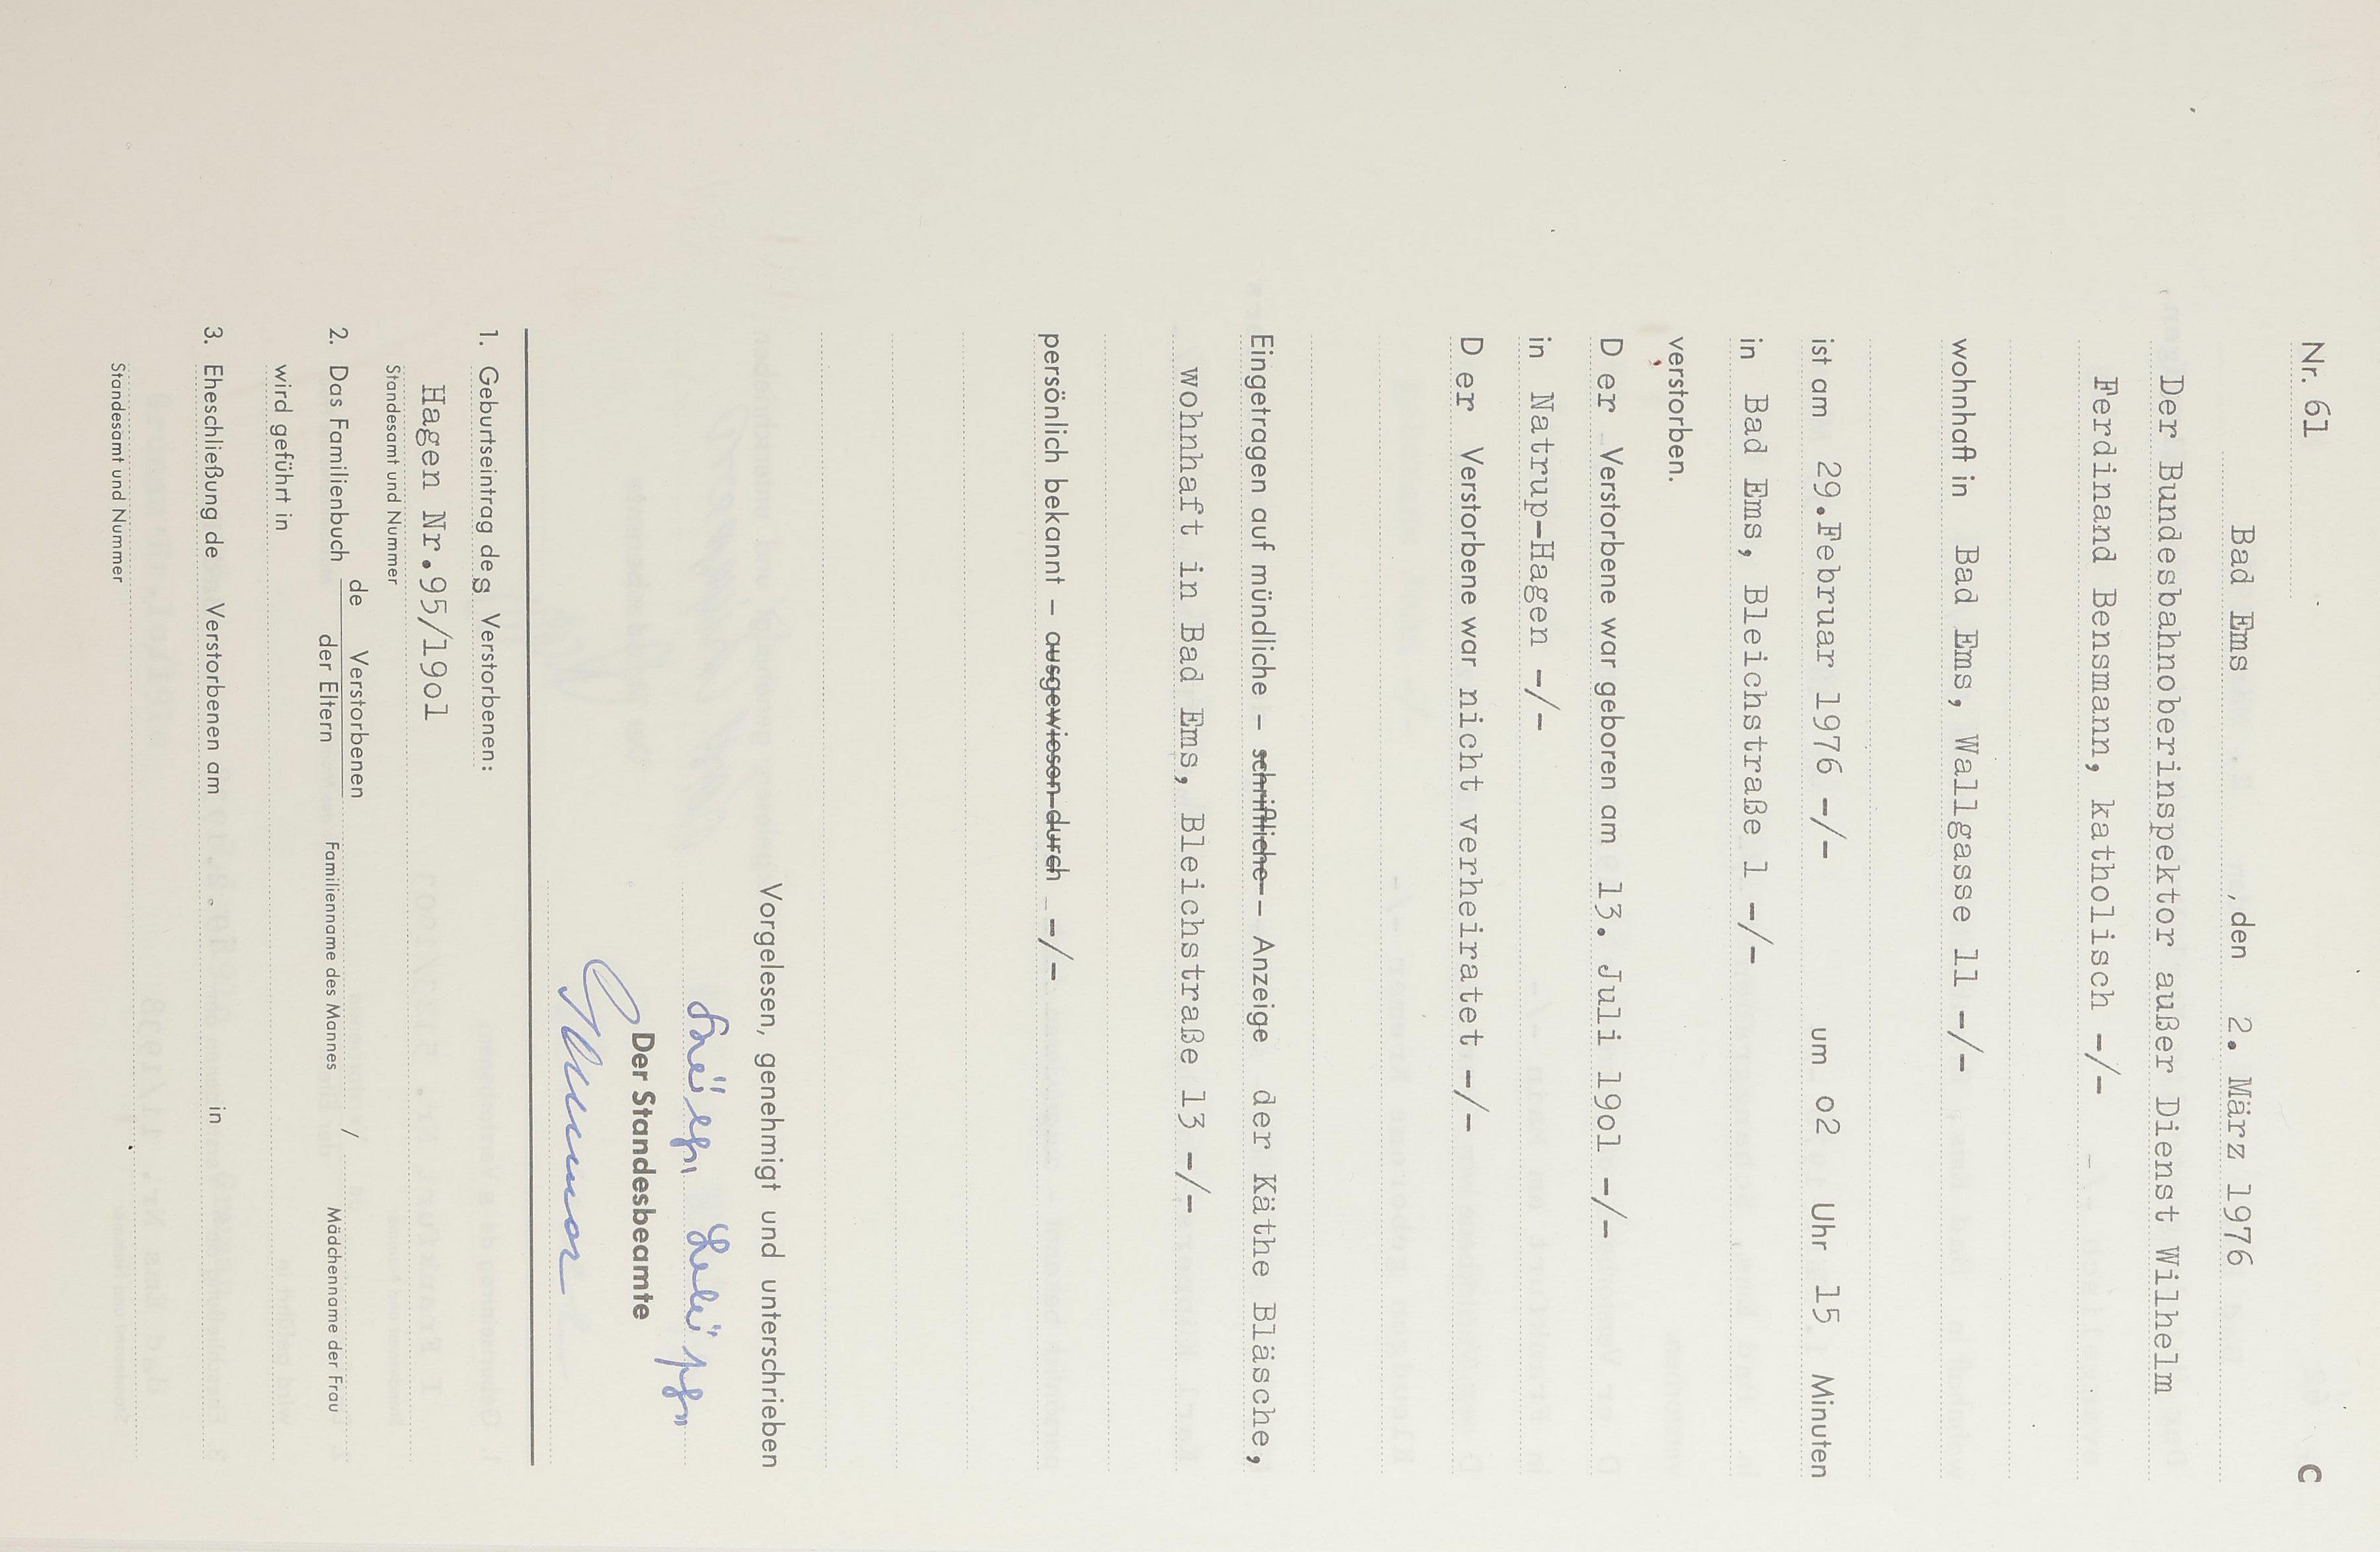 Nr. 61
C
Bad Ems , den 2. März 1976
Der Bundesbahnoberinspektor außer Dienst Wilhelm
Ferdinand Bensmann, katholisch -/-
wohnhaft in Bad Ems, Wallgasse 11 -/-
ist am 29.Februar 1976 -/- um o2 Uhr 15 Minuten
in Bad Ems, Bleichstraße 1 -/-
verstorben.
D er Verstorbene war geboren am 13. Juli 19o1 -/-
in Natrup-Hagen -/-
D er Verstorbene war nicht verheiratet -/-
Eingetragen auf mündliche – schriftliche – Anzeige der Käthe Bläsche,
wohnhaft in Bad Ems, Bleichstraße 13 -/-
persönlich bekannt – ausgewiesen durch -/-
Vorgelesen, genehmigt und unterschrieben
Der Standesbeamte
1. Geburtseintrag des Verstorbenen:
Hagen Nr.95/19o1
Standesamt und Nummer
2. Das Familienbuch de Verstorbenen
der Eltern
Familienname des Mannes / Mädchenname der Frau
wird geführt in
3. Eheschließung de Verstorbenen am in
Standesamt und Nummer